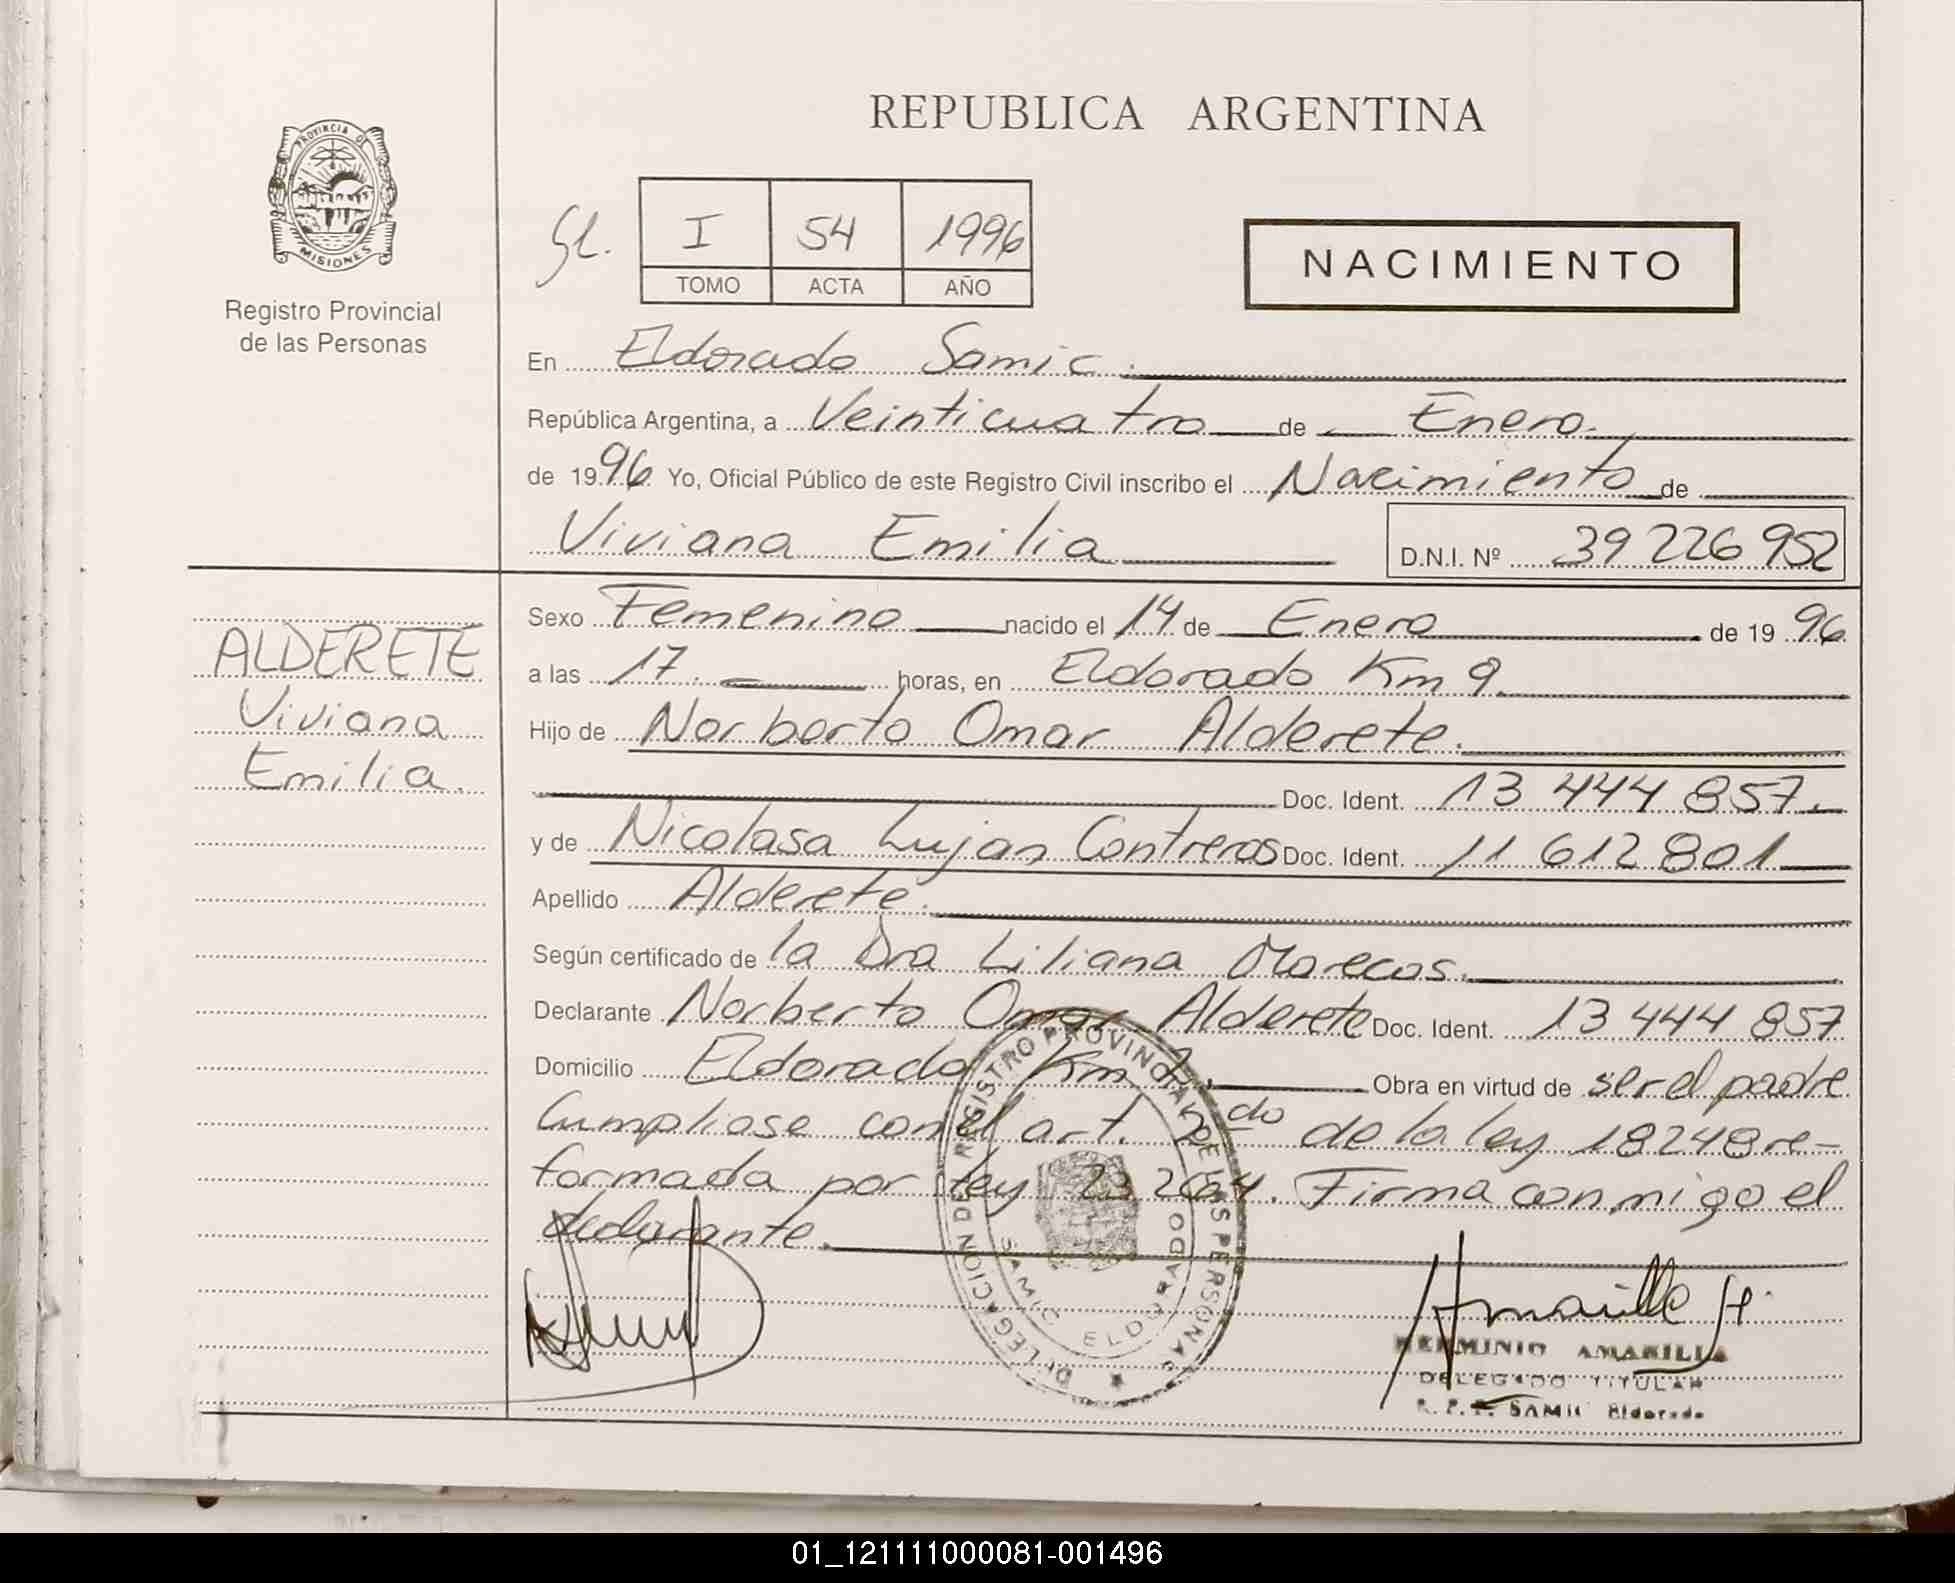 REPUBLICA ARGENTINA
PROVINCIA DE
MISIONES
Registro Provincial
de las Personas
I 54 1996
TOMO ACTA AÑO
NACIMIENTO
En Eldorado Samic.
República Argentina, a Veinticuatro de Enero.
de 1996 Yo, Oficial Público de este Registro Civil inscribo el Nacimiento de
Viviana Emilia D.N.I. Nº 39 226 952
ALDERETE
Viviana
Emilia.
Sexo Femenino nacido el 14 de Enero de 19 96
a las 17. horas, en Eldorado Km 9.
Hijo de Norberto Omar Alderete.
Doc. Ident. 13 444 857.
y de Nicolasa Lujan Contreras Doc. Ident. 11 612 801
Apellido Alderete.
Según certificado de la Dra Liliana Marecos.
Declarante Norberto Omar Alderete Doc. Ident. 13 444 857
Domicilio Eldorado Km Obra en virtud de ser el padre
Cumpliase con el art. 2do de la ley 18248 re-
formada por ley Firma conmigo el
declarante.
DELEGACION DE REGISTRO PROVINCIAL DE LAS PERSONAS
SAMIC ELDORADO
Amarilla H.
HERMINIO AMARILLA
DELEGADO TITULAR
R. P. P. SAMIC Eldorado
01_121111000081-001496